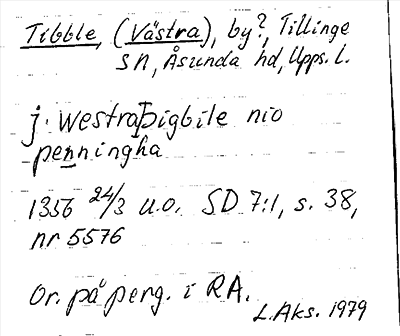 Tibble, (Västra), by?, Tillinge
sn, Åsunda hd, Upps. l.
j. westraþigbile nio
penningha
1356 24/3 u.o. SD 7:1, s. 38,
nr 5576
Or. på perg. i RA.
L. Aks. 1979